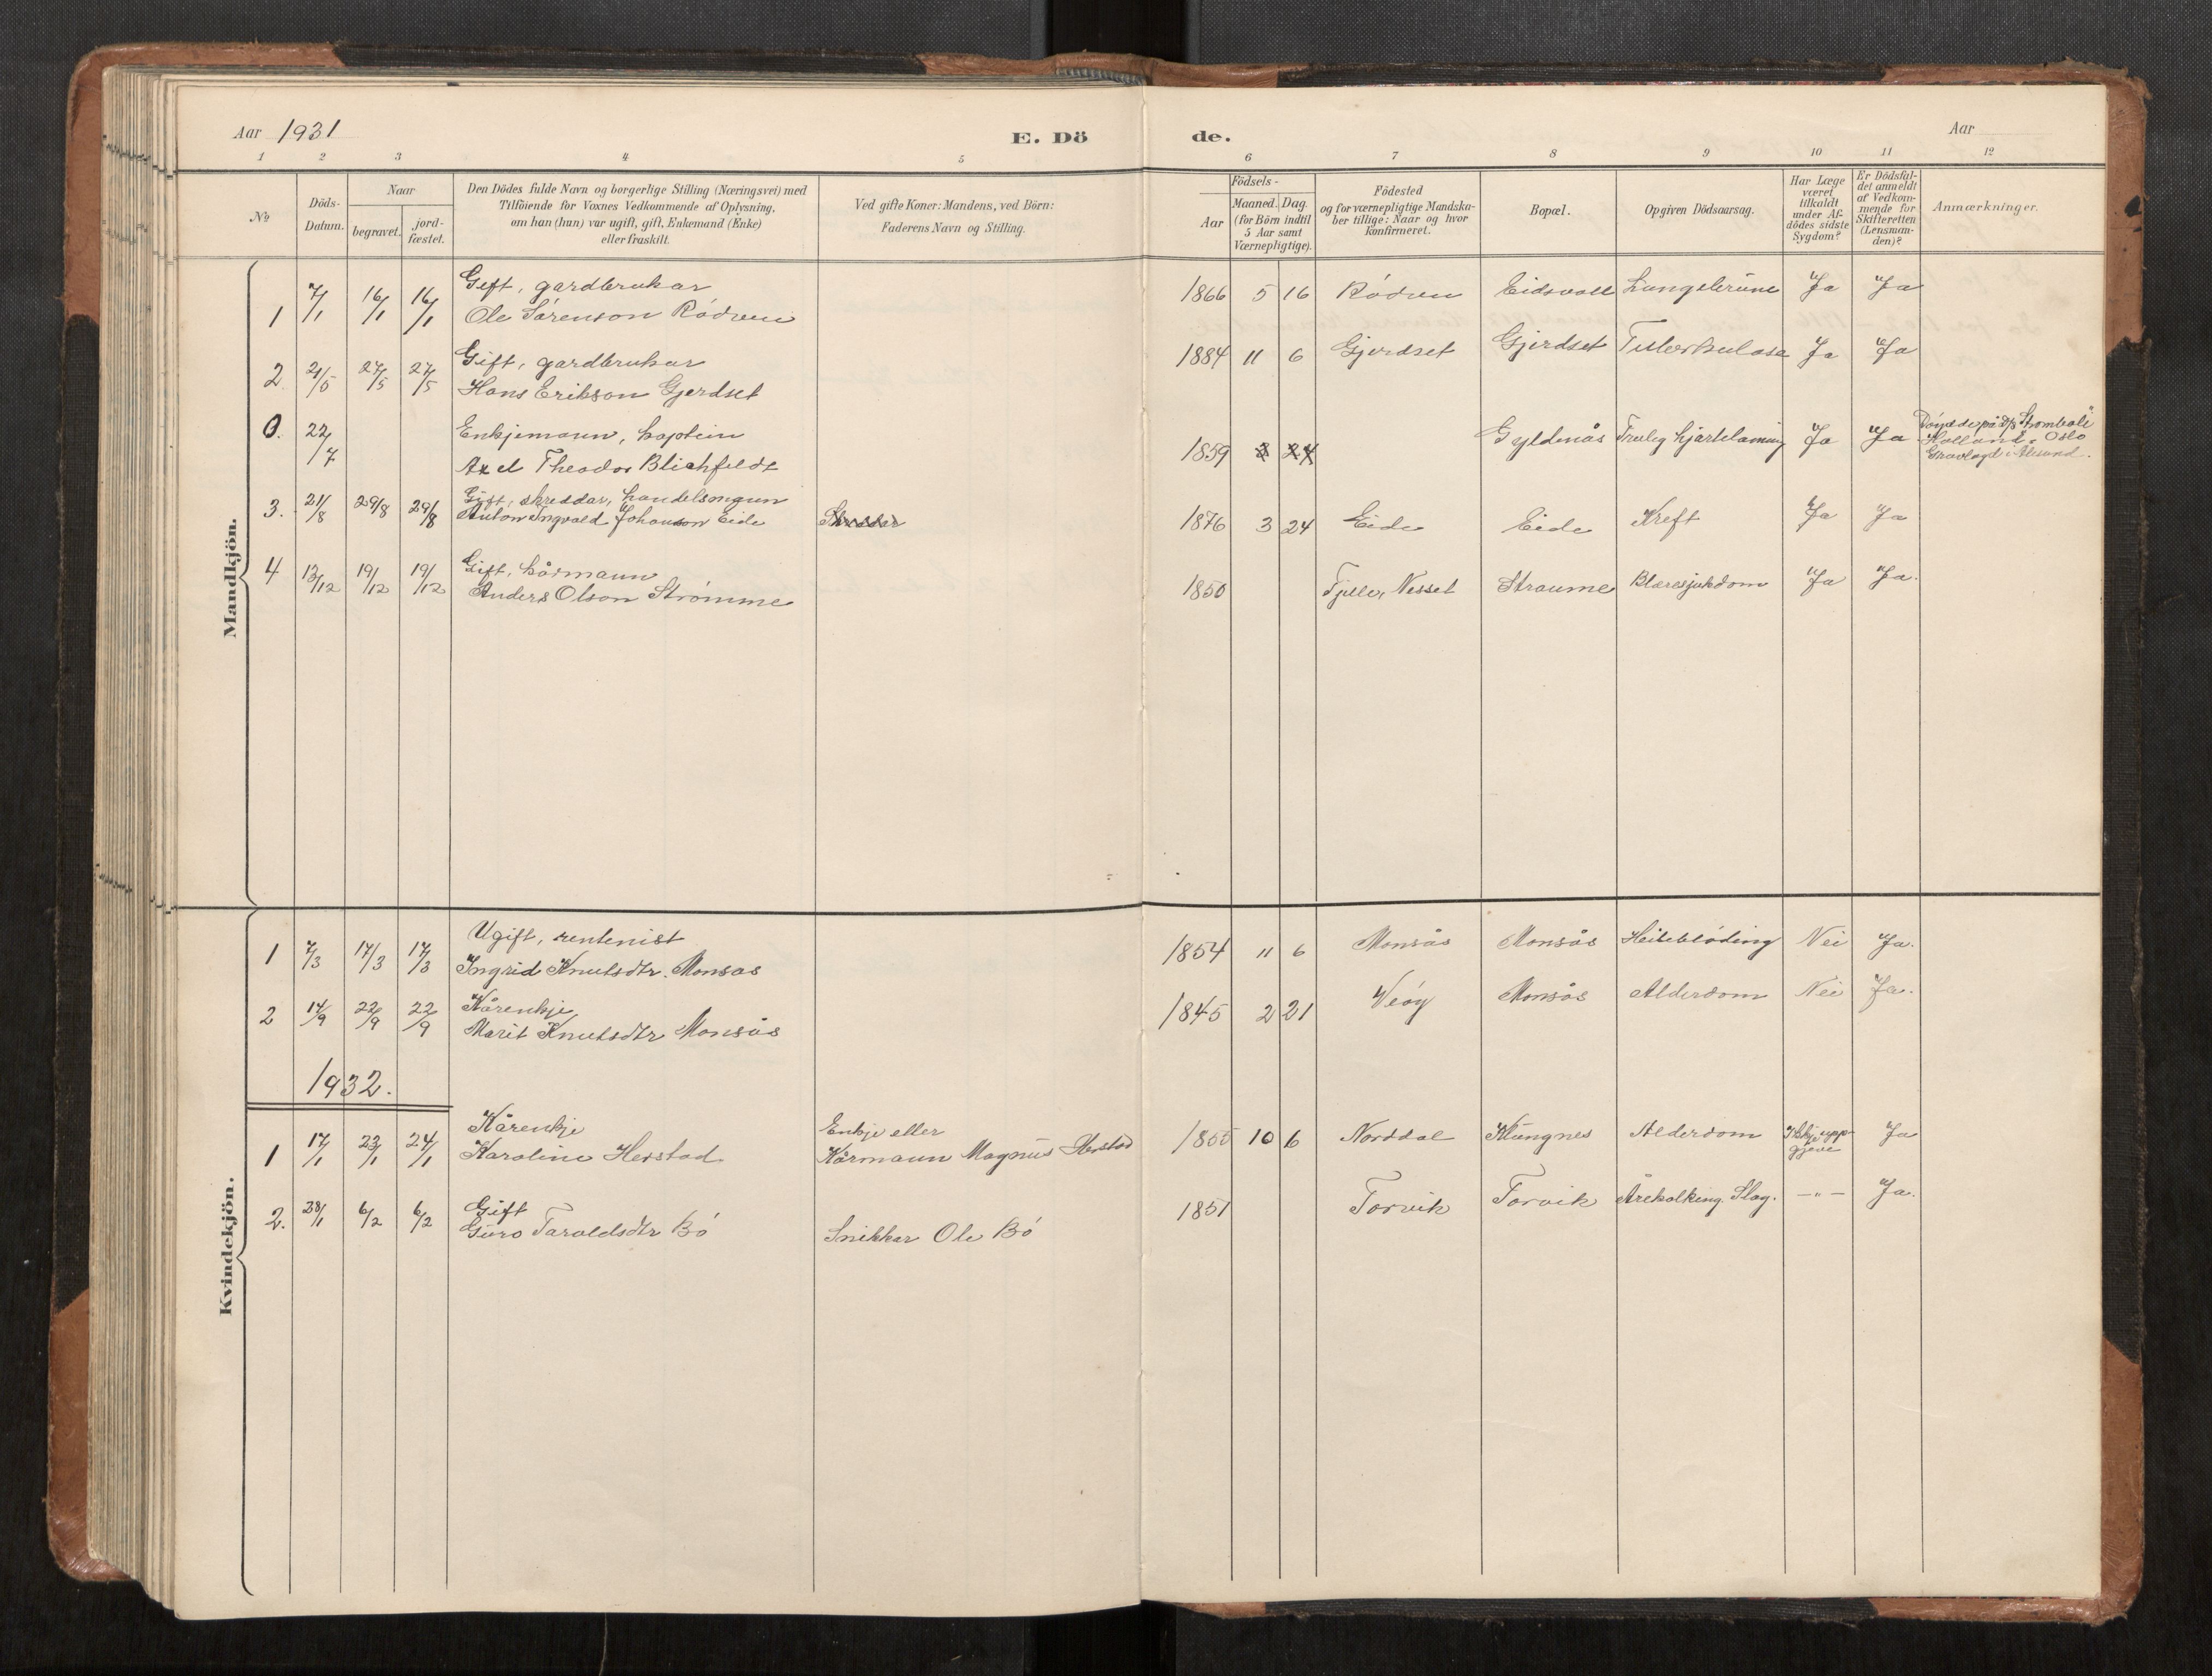 Aar 1931
E. Dö
de.
Aar
1 2 3 4 5 6 7 8 9 10 11 12
No
Döds-Datum.
Naar
begravet.
jord-fæstet.
Den Dödes fulde Navn og borgerlige Stilling (Næringsvei) med
Tilföiende for Voxnes Vedkommende af Oplysning,
om han (hun) var ugift, gift, Enkemand (Enke)
eller fraskilt.
Ved gifte Koner: Mandens, ved Börn:
Faderens Navn og Stilling.
Födsels-
Aar
Maaned. Dag.
(for Börn indtil
5 Aar samt
Værnepligtige).
Födested
og for værnepligtige Mandska-
ber tillige: Naar og hvor
konfirmeret.
Bopæl.
Opgiven Dödsaarsag.
Har Læge
været
tilkaldt
under Af-
dödes sidste
Sygdom?
Er Dödsfal-
det anmeldt
af Vedkom-
mende for
Skifteretten
(Lensman-
den)?
Anmærkninger.
Mandkjön.
1 7/1 16/1 16/1 Gift, gardbrukar
Ole Sørenson Rødven 1866 5 16 Rødven Eidsvoll Lungebrune Ja Ja
2. 21/5 27/5 27/5 Gift, gardbrukar
Hans Erikson Gjerdset 1884 11 6 Gjerdset Gjerdset Tuberkulose Ja Ja
0. 22/7 Enkjemann, kaptein
Axel Theodor Blichfeldt 1859 3 24 Gyldenås Truleg hjartelaming Ja Ja
Døydde på D/S "Stromboli"
Holland - Oslo
Gravlagd i Ålesund.
3. 21/8 29/8 29/8 Gift, skreddar, handelsmann
Anton Ingvald Johanson Eide 1876 3 24 Eide Eide Kreft Ja Ja
4 13/12 19/12 19/12 Gift, kårmann
Anders Olson Strømme 1850 Tjelle, Nesset Straume Blæresjukdom Ja Ja.
Kvindekjön.
1 7/3 17/3 17/3 Ugift, rentenist
Ingrid Knutsdtr. Monsås 1854 11 6 Monsås Monsås Heilebløding Nei Ja.
2 14/9 22/9 22/9 Kårenkje
Marit Knutsdtr Monsås 1845 2 21 Veøy Monsås Alderdom Nei Ja.
1932.
1 17/1 23/1 24/1 Kårenkje
Karoline Herstad
Enkje eller
Kårmann Magnus Herstad 1855 10 6 Norddal Klungnes Alderdom Ikkje upp-
gjeve Ja
2. 28/1 6/2 6/2 Gift
Guro Taraldsdtr Bø Snikkar Ole Bø 1851 Torvik Torvik Årekalking. Slag. —"— Ja.